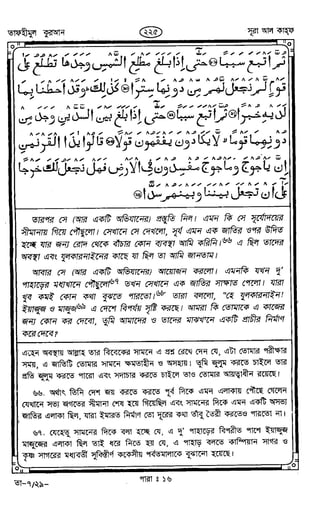 তাফহীমুল কুরআন
২২৫
সূরা আল কাহফ
ثُمَّ أَتْبَعَ سَبَبًا ۝ حَتَّىٰ إِذَا بَلَغَ مَطْلِعَ الشَّمْسِ وَجَدَهَا تَطْلُعُ عَلَىٰ
قَوْمٍ لَّمْ نَجْعَل لَّهُم مِّن دُونِهَا سِتْرًا ۝ كَذَٰلِكَ وَقَدْ أَحَطْنَا بِمَا
لَدَيْهِ خُبْرًا ۝ ثُمَّ أَتْبَعَ سَبَبًا ۝ حَتَّىٰ إِذَا بَلَغَ بَيْنَ السَّدَّيْنِ وَجَدَ مِن
دُونِهِمَا قَوْمًا لَّا يَكَادُونَ يَفْقَهُونَ قَوْلًا ۝ قَالُوا يَٰذَا الْقَرْنَيْنِ
إِنَّ يَأْجُوجَ وَمَأْجُوجَ مُفْسِدُونَ فِي الْأَرْضِ فَهَلْ نَجْعَلُ لَكَ خَرْجًا
عَلَىٰ أَن تَجْعَلَ بَيْنَنَا وَبَيْنَهُمْ سَدًّا ۝
তারপর সে (আর একটি অভিযানের) প্রস্তুতি নিল। এমন কি সে সূর্যোদয়ের
সীমানায় গিয়ে পৌঁছুলো। সেখানে সে দেখলো, সূর্য এমন এক জাতির ওপর উদিত
হচ্ছে যার জন্য রোদ থেকে বাঁচার কোন ব্যবস্থা আমি করিনি।৬৬ এ ছিল তাদের
অবস্থা এবং যুলকারনাইনের কাছে যা ছিল তা আমি জানতাম।
আবার সে (আর একটি অভিযানের) আয়োজন করলো। এমনকি যখন দু'
পাহাড়ের মধ্যখানে পৌঁছুলো৬৭ তখন সেখানে এক জাতির সাক্ষাত পেলো। যারা
খুব কমই কোন কথা বুঝতে পারতো।৬৮ তারা বললো, "হে যুলকারনাইন!
ইয়াজুজ ও মাজুজ৬৯ এ দেশে বিপর্যয় সৃষ্টি করছে। আমরা কি তোমাকে এ কাজের
জন্য কোন কর দেবো, তুমি আমাদের ও তাদের মাঝখানে একটি প্রাচীর নির্মাণ
করে দেবে?
এহেন অবস্থায় আল্লাহ তার বিবেকের সামনে এ প্রশ্ন রেখে দেন যে, এটা তোমার পরীক্ষার
সময়, এ জাতিটি তোমার সামনে ক্ষমতাহীন ও অসহায়। তুমি জুলুম করতে চাইলে তার
প্রতি জুলুম করতে পারো এবং সদাচার করতে চাইলে তাও তোমার আয়ত্বাধীন রয়েছে।
৬৬. অর্থাৎ তিনি দেশ জয় করতে করতে পূর্ব দিকে এমন এলাকায় পৌঁছে গেলেন
যেখানে সভ্য জগতের সীমানা শেষ হয়ে গিয়েছিল এবং সামনের দিকে এমন একটি অসভ্য
জাতির এলাকা ছিল, যারা ইমারত নির্মাণ তো দূরের কথা তাঁবু তৈরী করতেও পারতো না।
৬৭. যেহেতু সামনের দিকে বলা হচ্ছে যে, এ দু' পাহাড়ের বিপরীত পাশে ইয়াজুজ
মাজুজের এলাকা ছিল তাই ধরে নিতে হয় যে, এ পাহাড় বলতে কাস্পিয়ান সাগর ও
কৃষ্ণ সাগরের মধ্যবর্তী সুবিস্তীর্ণ ককেশীয় পর্বতমালাকে বুঝানো হয়েছে।
তা-৭/২৯-
পারা : ১৬